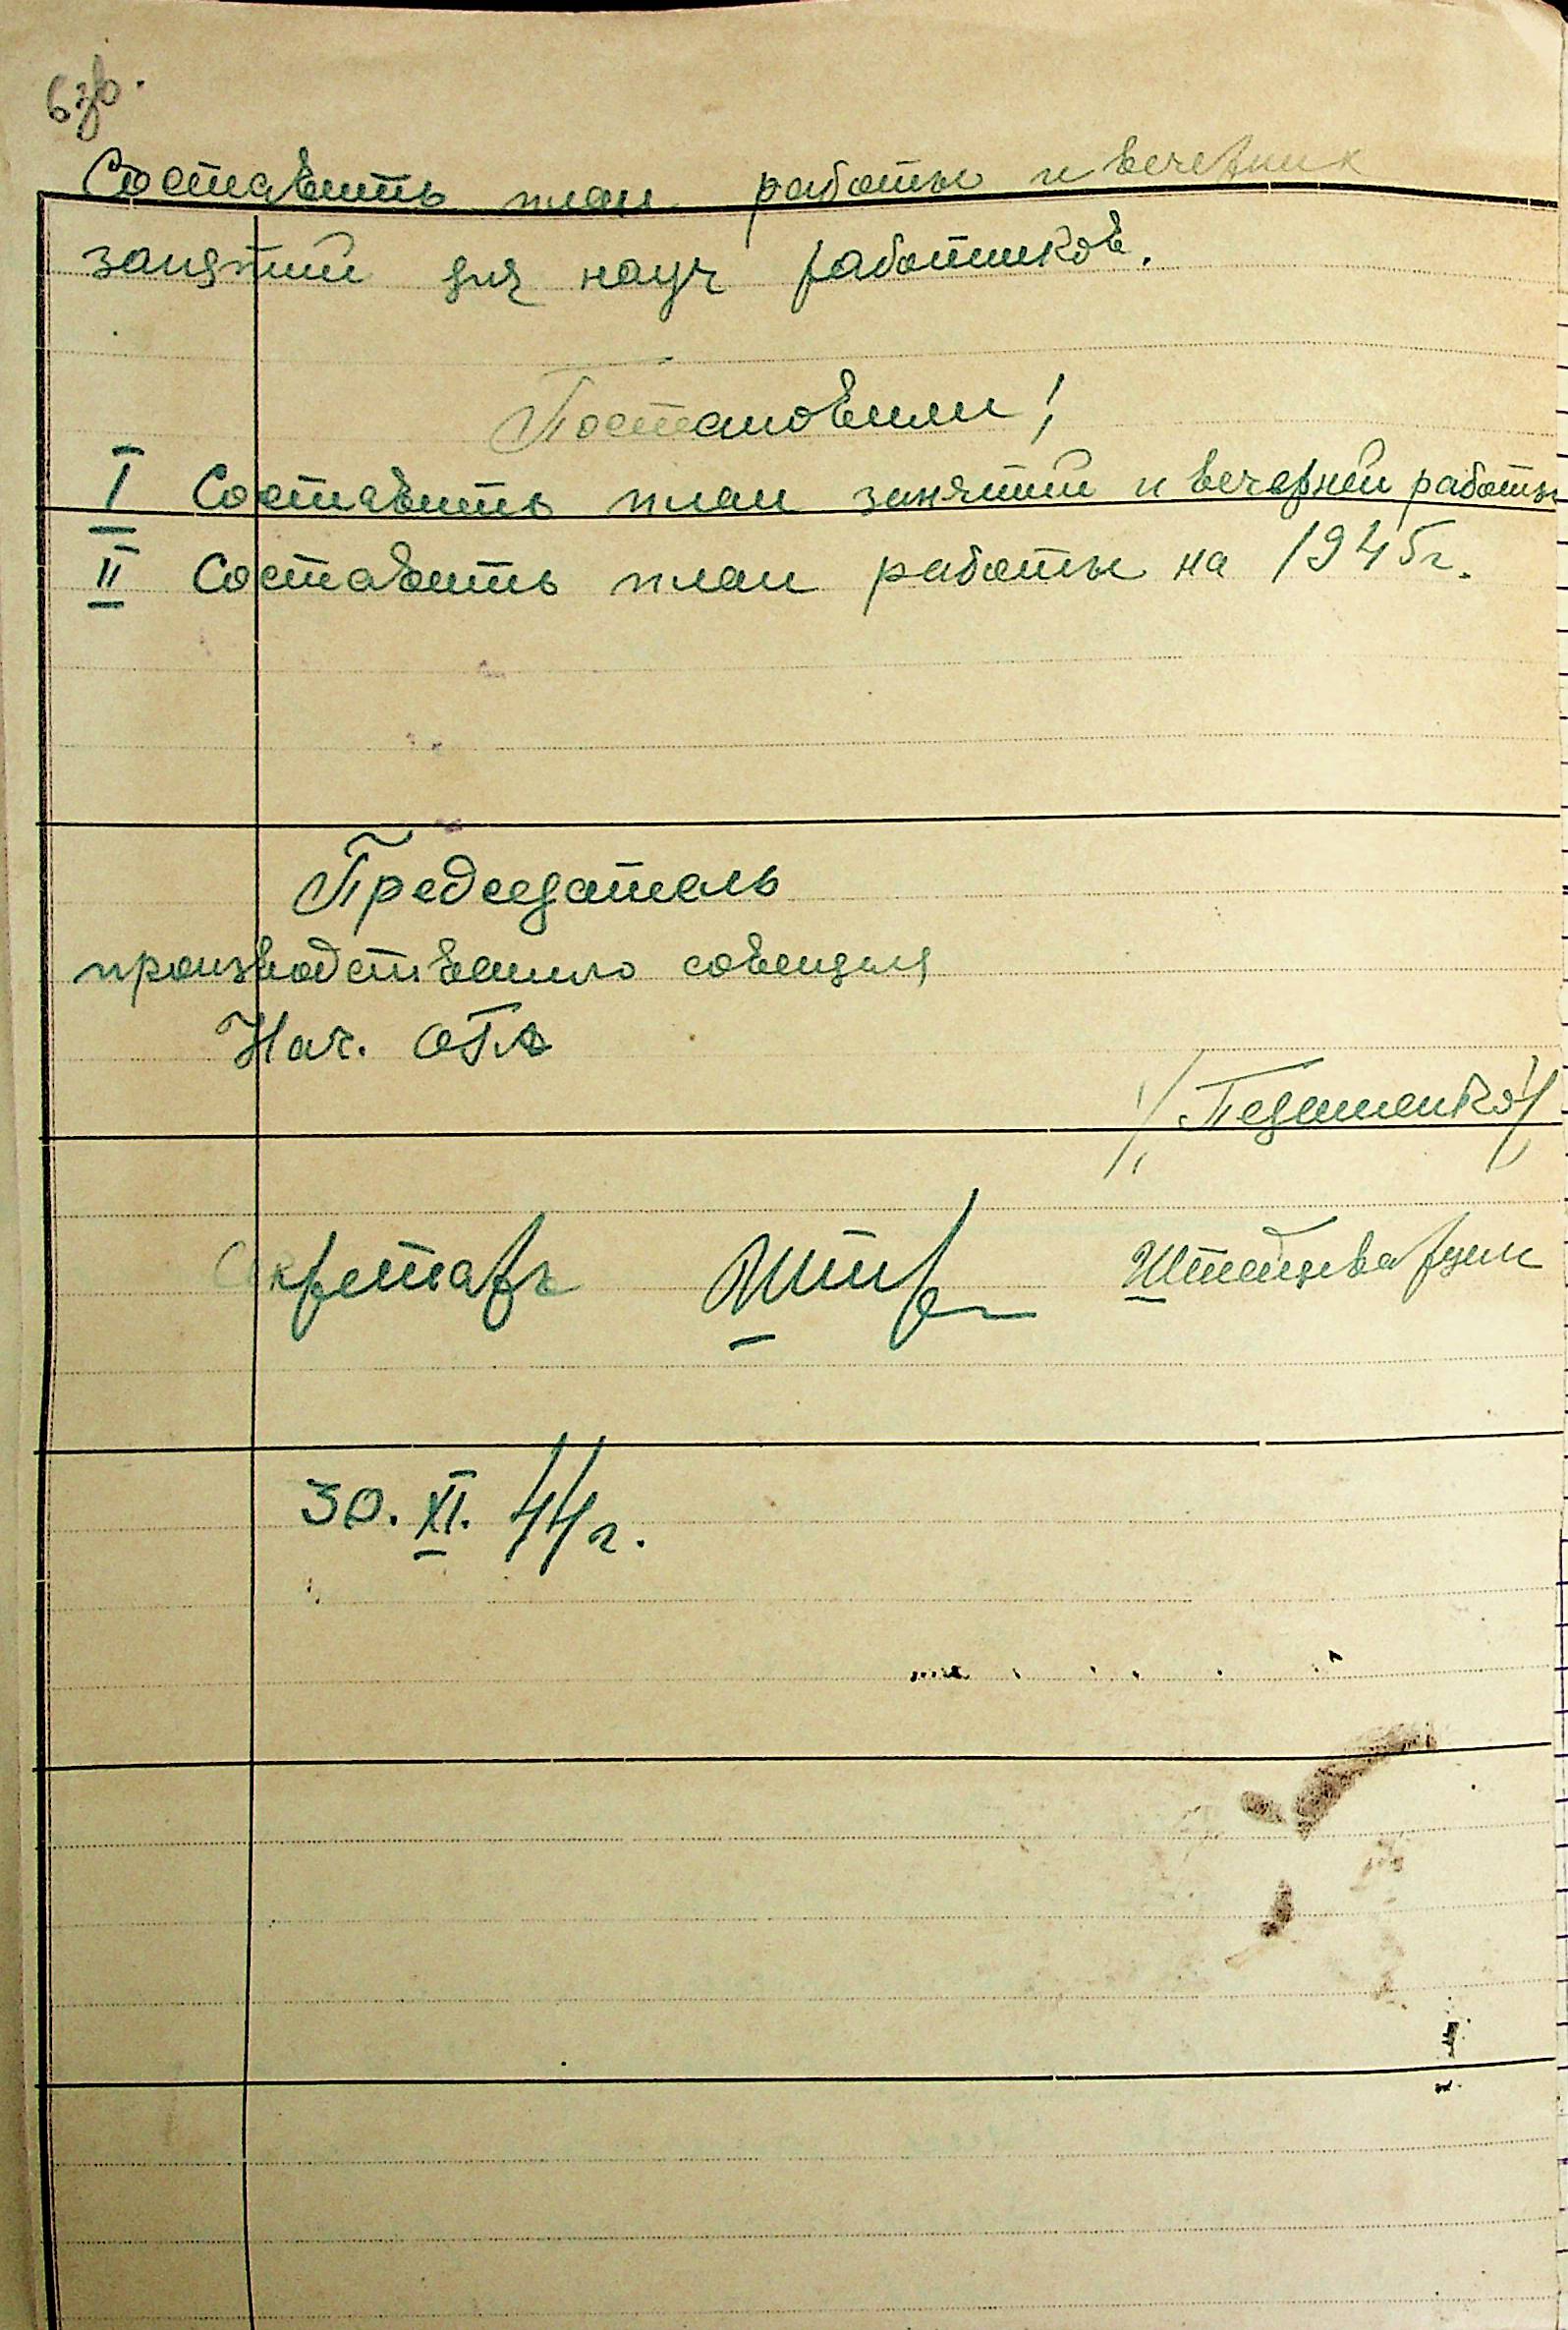 6 об.
Составить план работы и вечерних
занятий для науч работников.
Постановили!
I Составить план занятий и вечерней работы
II Составить план работы на 1945г.
Председатель
производственного совещания
Нач. ОГА
/Педашенко/
Секретарь
30.XI.44г.